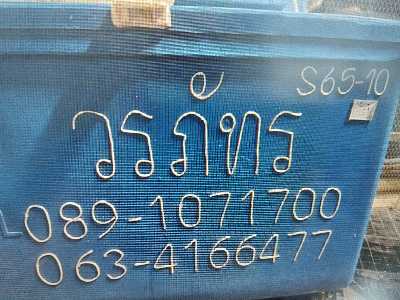 S65-10
วรภัทร
089-1071700
063-4166477